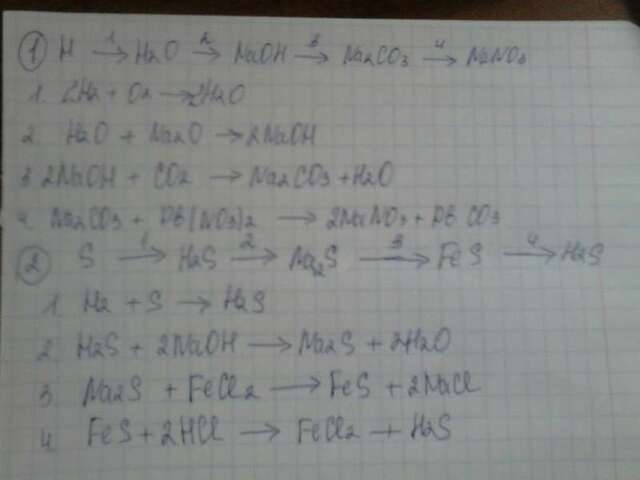 1 H 1→ H2O 2→ NaOH 3→ Na2CO3 4→ NaNO3
1. 2H2 + O2 → 2H2O
2 H2O + Na2O → 2NaOH
3 2NaOH + CO2 → Na2CO3 + H2O
4. Na2CO3 + Pb(NO3)2 → 2NaNO3 + Pb CO3
2 S 1→ H2S 2→ Na2S 3→ FeS 4→ H2S
1. H2 + S → H2S
2. H2S + 2NaOH → Na2S + 2H2O
3. Na2S + FeCl2 → FeS + 2NaCl
4. FeS + 2HCl → FeCl2 + H2S